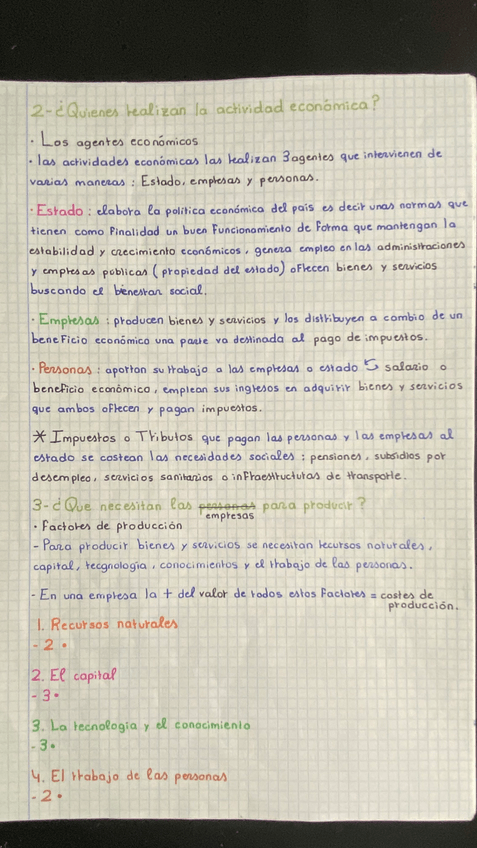 2-¿Quienes realizan la actividad económica?
· Los agentes económicos
· las actividades económicas las realizan 3agentes que intervienen de
varias maneras : Estado, empresas y personas.
· Estado : elabora la política económica del pais es decir unas normas que
tienen como finalidad un buen funcionamiento de forma que mantengan la
estabilidad y crecimiento económicos, genera empleo en las administraciones
y empresas públicas ( propiedad del estado) ofrecen bienes y servicios
buscando el bienestar social.
· Empresas : producen bienes y servicios y los distribuyen a cambio de un
beneficio económico una parte va destinada al pago de impuestos.
· Personas : aportan su trabajo a las empresas o estado ↪ salario o
beneficio económico, emplean sus ingresos en adquirir bienes y servicios
que ambos ofrecen y pagan impuestos.
* Impuestos o Tributos que pagan las personas y las empresas al
estado se costean las necesidades sociales : pensiones, subsidios por
desempleo, servicios sanitarios o infraestructuras de transporte.
3-¿Que necesitan las personas para producir?
empresas
· Factores de producción
- Para producir bienes y servicios se necesitan recursos naturales,
capital, tecgnología, conocimientos y el trabajo de las personas.
- En una empresa la + del valor de todos estos factores = costes de
producción.
1. Recursos naturales
- 2 •
2. El capital
- 3 •
3. La tecnología y el conocimiento
- 3 •
4. El trabajo de las personas
- 2 •